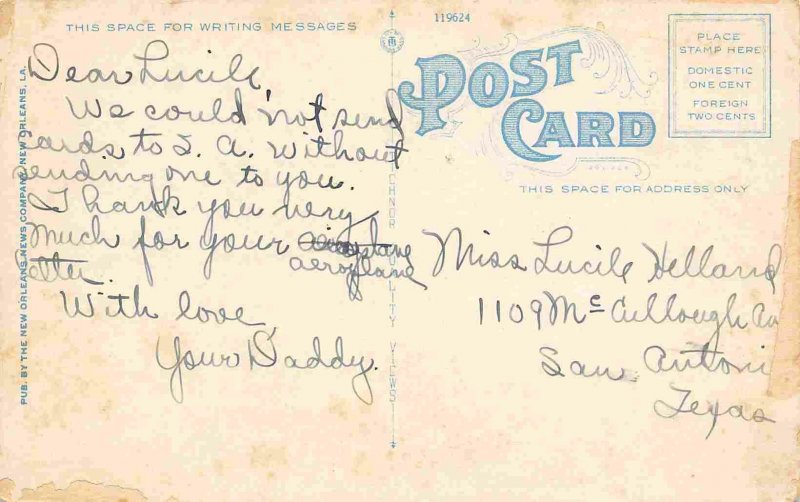 THIS SPACE FOR WRITING MESSAGES
119624
POST
CARD
PLACE
STAMP HERE
DOMESTIC
ONE CENT
FOREIGN
TWO CENTS
THIS SPACE FOR ADDRESS ONLY
PUB. BY THE NEW ORLEANS NEWS COMPANY, NEW ORLEANS, LA.
Dear Lucile,
We could not send
cards to S. A. without
sending one to you.
Thank you very
much for your aeroplane
letter.
With love,
Your Daddy.
QUALITY VIEWS
Miss Lucile Helland
1109 Mc Cullough Av
San Antoni
Texas